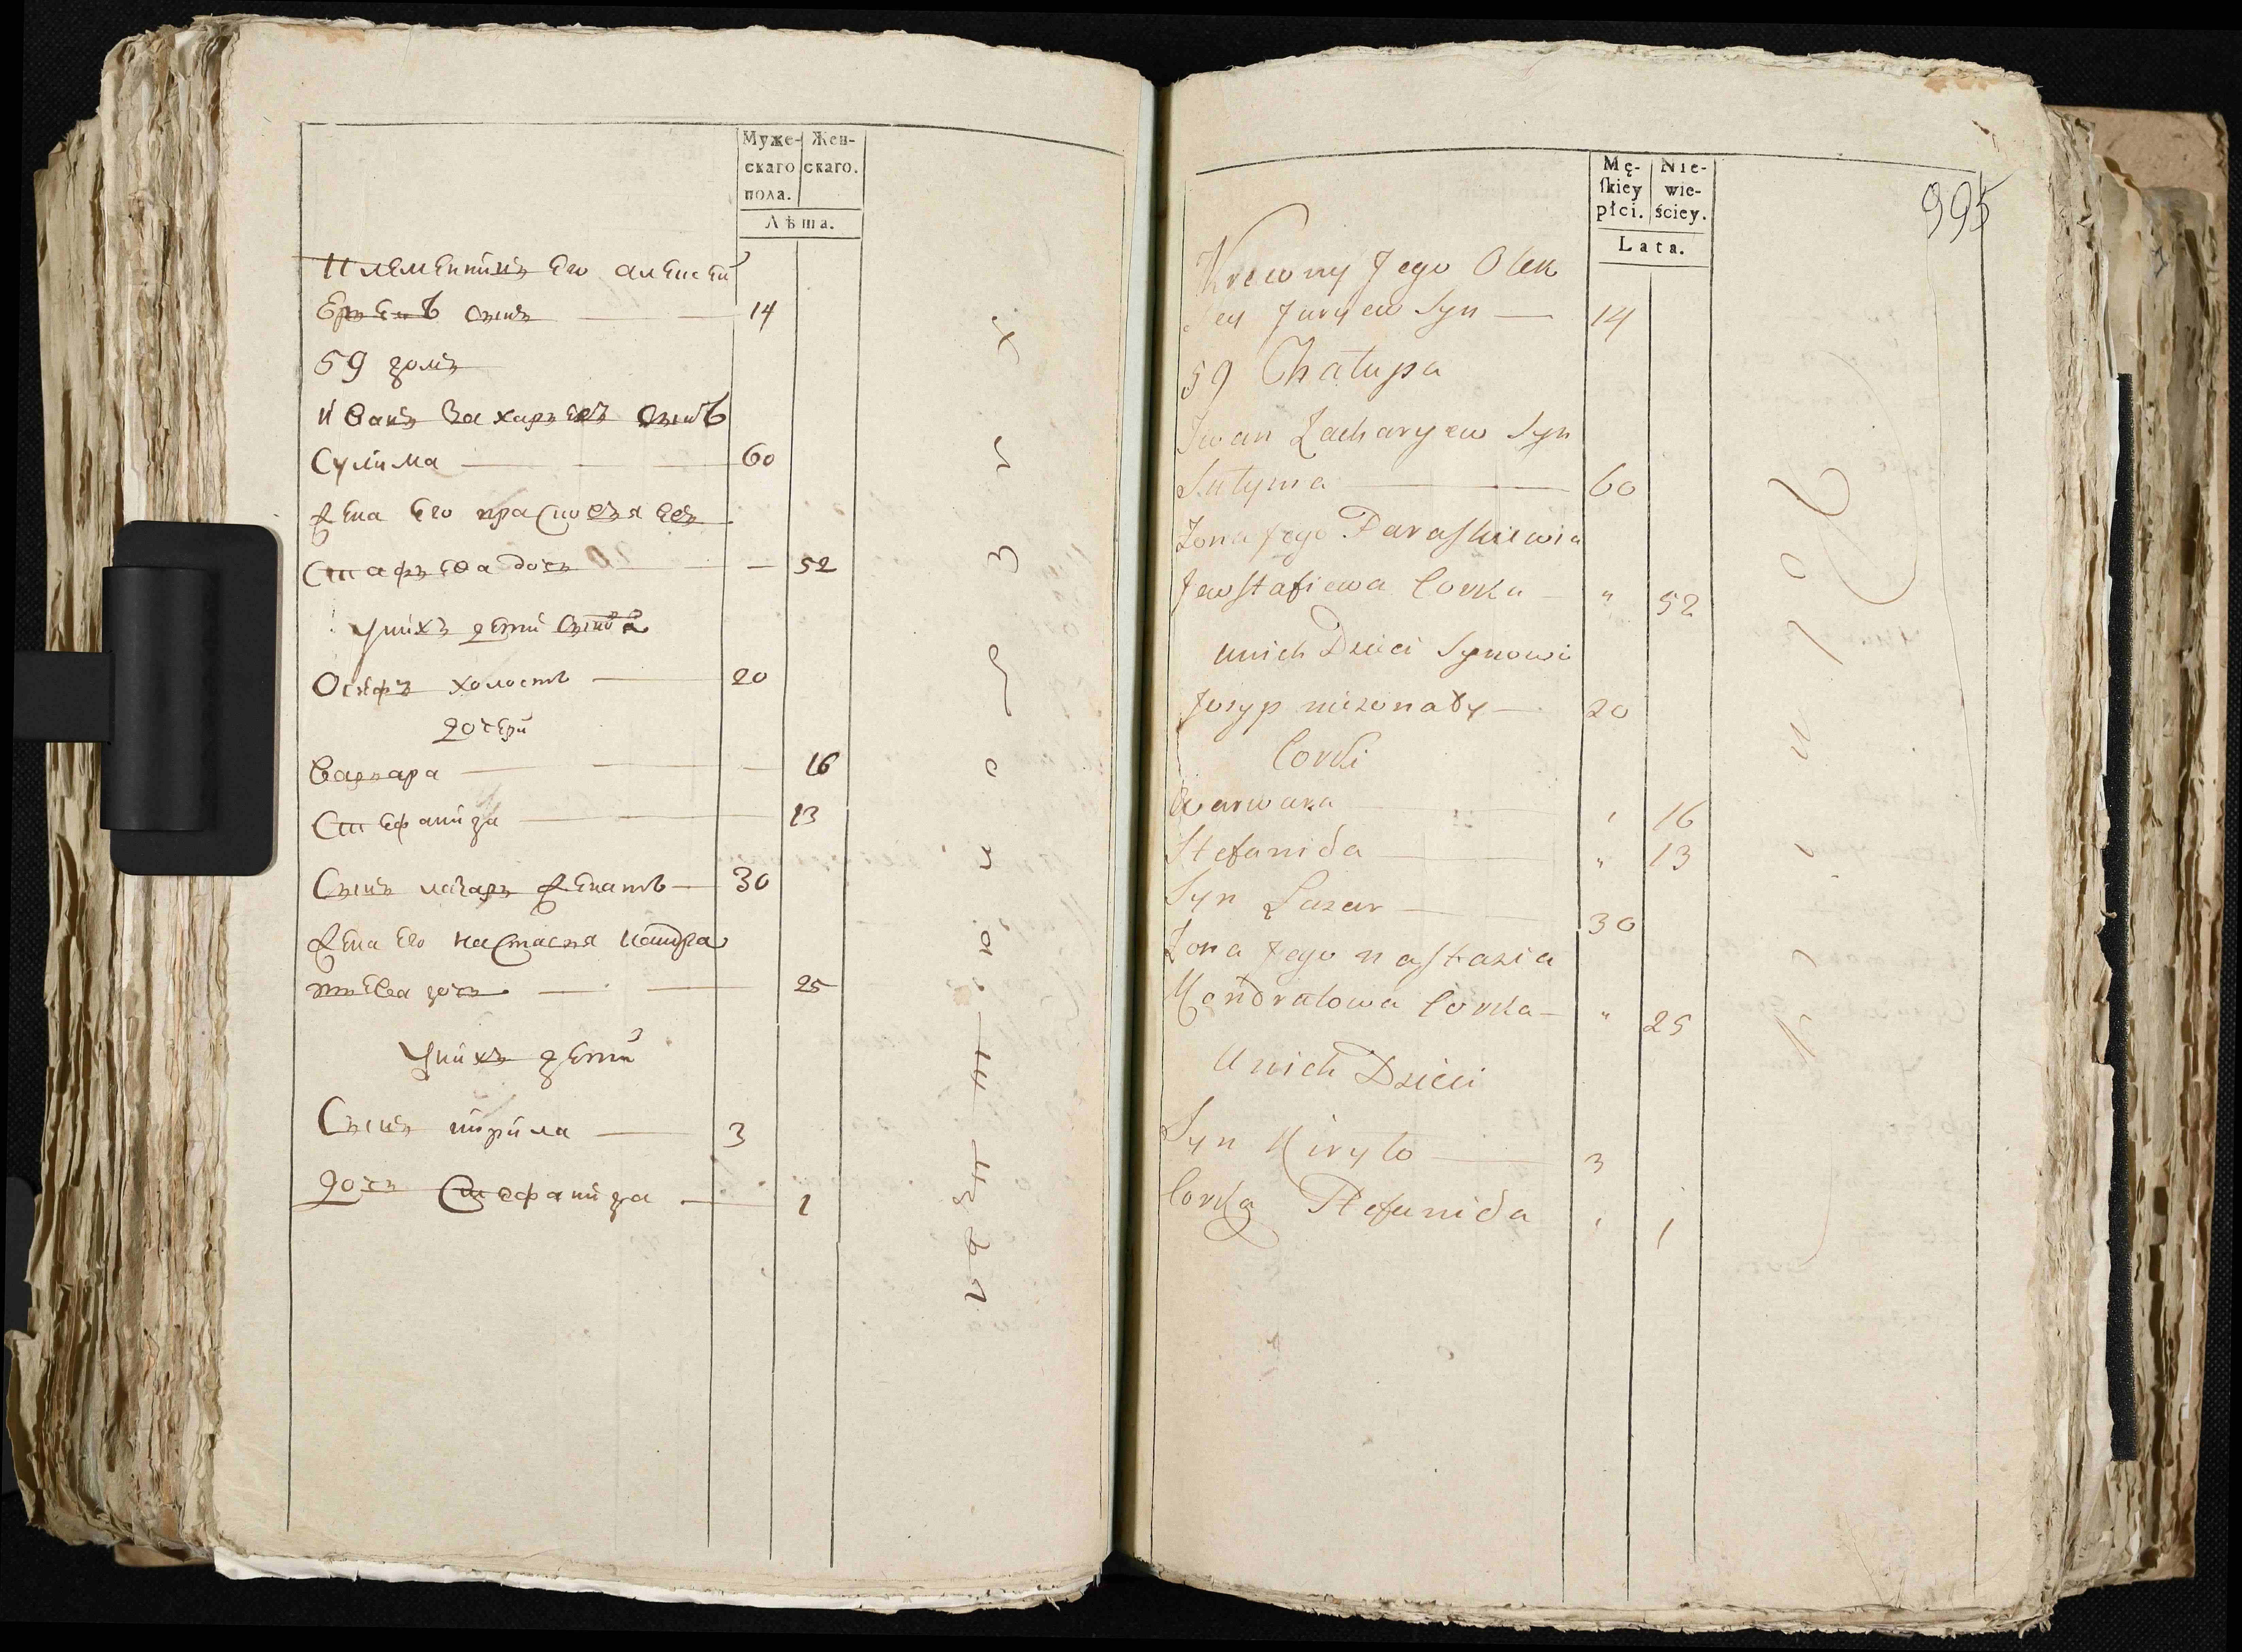 Муже- Жен-
скаго скаго.
пола.
Лѣта.
Племенникъ его алексей
Еръевъ сынъ 14
59 домъ
иванъ Захаръевъ сынъ
Сулима 60
жена его прасковъя ев
стафъева дочъ 52
унихъ дети
Осифъ холостъ 20
дочери
Варвара 16
Стефанида 13
Сынъ лазаръ женатъ 30
жена его настасъя кондра
тъева дочъ 25
унихъ дети
Сынъ кирила 3
дочъ Стефанида 1
Mę- Nie-
skiey wie-
płci. ściey.
Lata.
995
Krewny Jego Olek
sey Juryew Syn 14
59 Chałupa
Iwan Zacharyew Syn
Sulyma 60
Żona Jego Paraskiewia
Jewstafiewa Corka " 52
unich Dzieci Synowi
Josyp niezonaty 20
Corki
Warwara 16
Stefanida " 13
Syn Lazar 30
Zona Jego nastazia
Kondratowa Corka " 25
Unich Dzieci
Syn Kiryło 3
Corka Stefanida 1